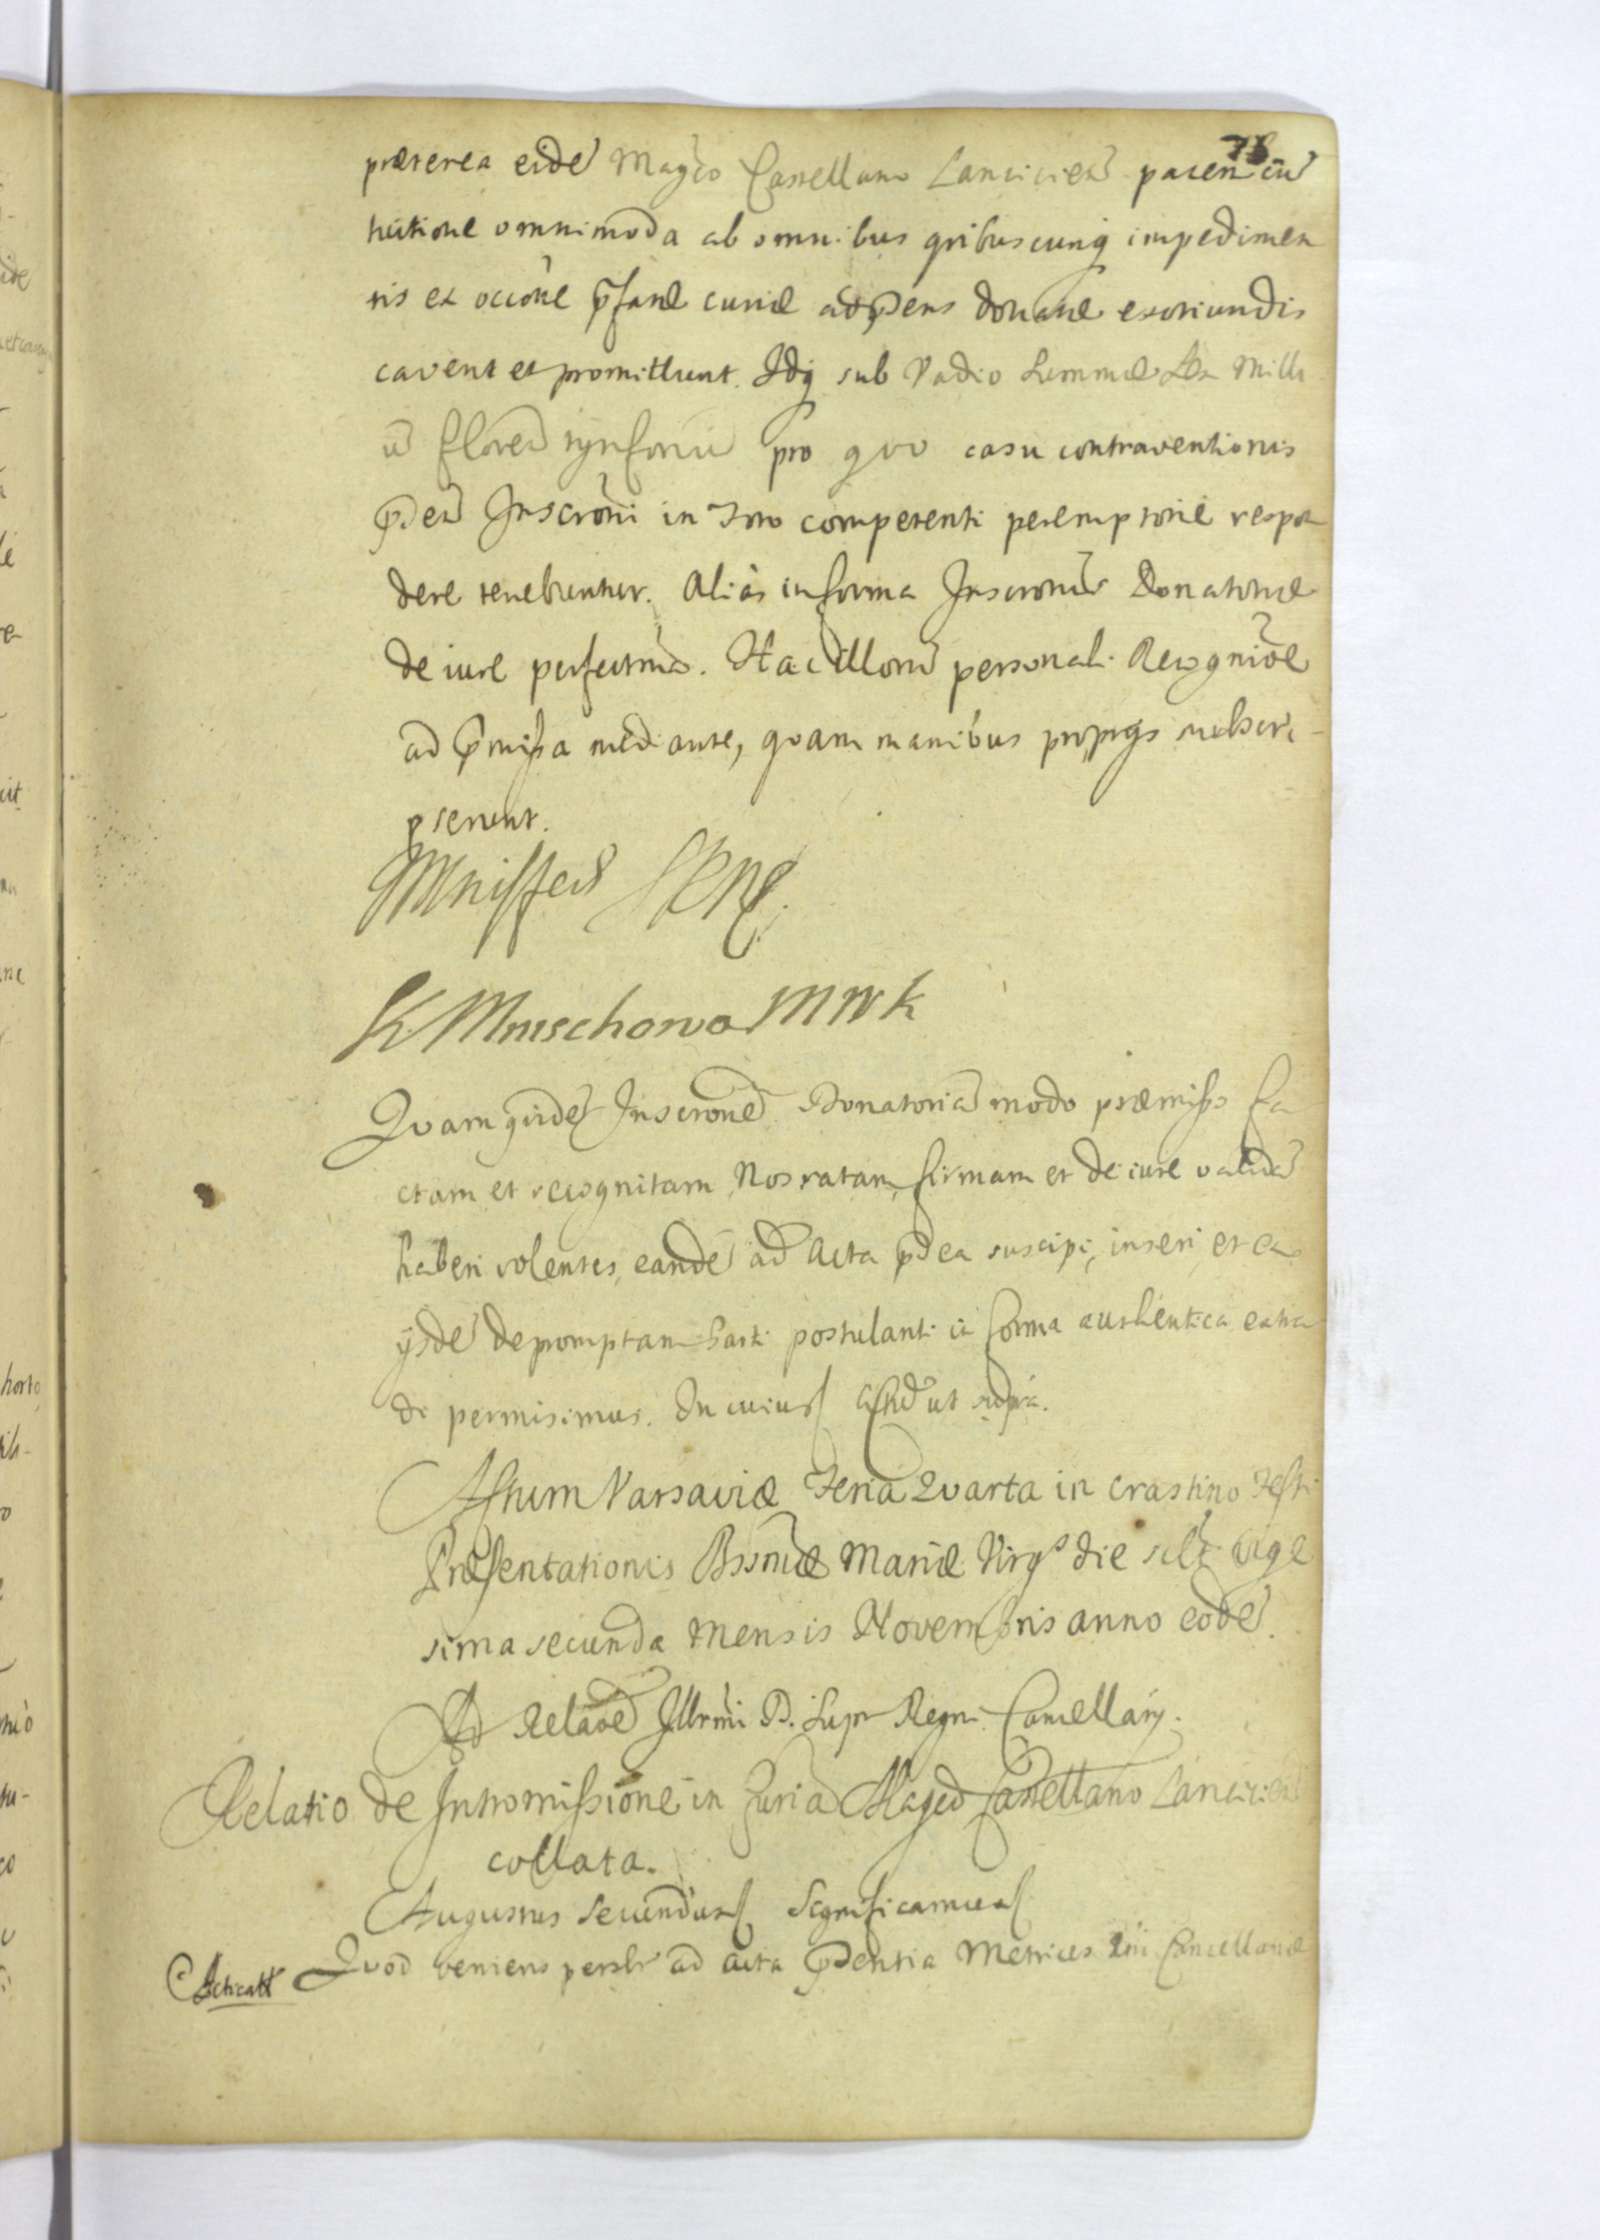 78
præterea eidē Magco Castellano Lancicien pacem cū
tuitione omnimoda ab omnibus quibuscunq impedimen
tis ex occōne pfatæ curiæ ad pens donatæ exoriundis
cavent et promittunt. Idq sub Vadio Summæ Milli
ū floren pro quo casu contraventionis
pdcta Inscrōni in Foro competenti peremptorie respon
dere tenebuntur. Aliàs in forma Inscronis Donatoriæ
de iure perfectma. Hac illorū personali Recognitōe
ad pmissa mediante, quam manibus proprys subscri-
pserunt.
K Mnischowa MWK
Quam quidē Inscronē Donatoriā modo præmisso fa
ctam et recognitam, Nos ratam, firmam et de iure validā
haberi volentes, eandē ad Acta pdca suscipi, inseri, et ex
ijsdē depromptam Parti postulanti in forma authentica extra
di permisimus. In cuius ut supra.
Actum Varsaviæ Feria Quarta in crastino Festi
Præsentationis Bssmæ Mariæ Virgs die scilt vige
sima secunda Mensis Novembris anno eodē.
Ad Relaōē Illrmi D. Supr Regni Cancellarij.
Relatio de Intromissione in Curiā Magco Castellano Lancicien
collata.
Augustus Secundus Significamus
Quod veniens persltr ad acta pdentia Metrices Rni Cancellariæ